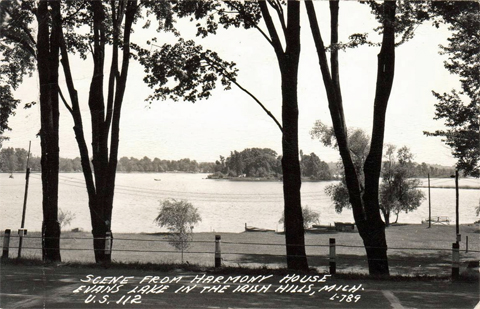 SCENE FROM HARMONY HOUSE
EVANS LAKE IN THE IRISH HILLS, MICH.
U.S. 112 L-789